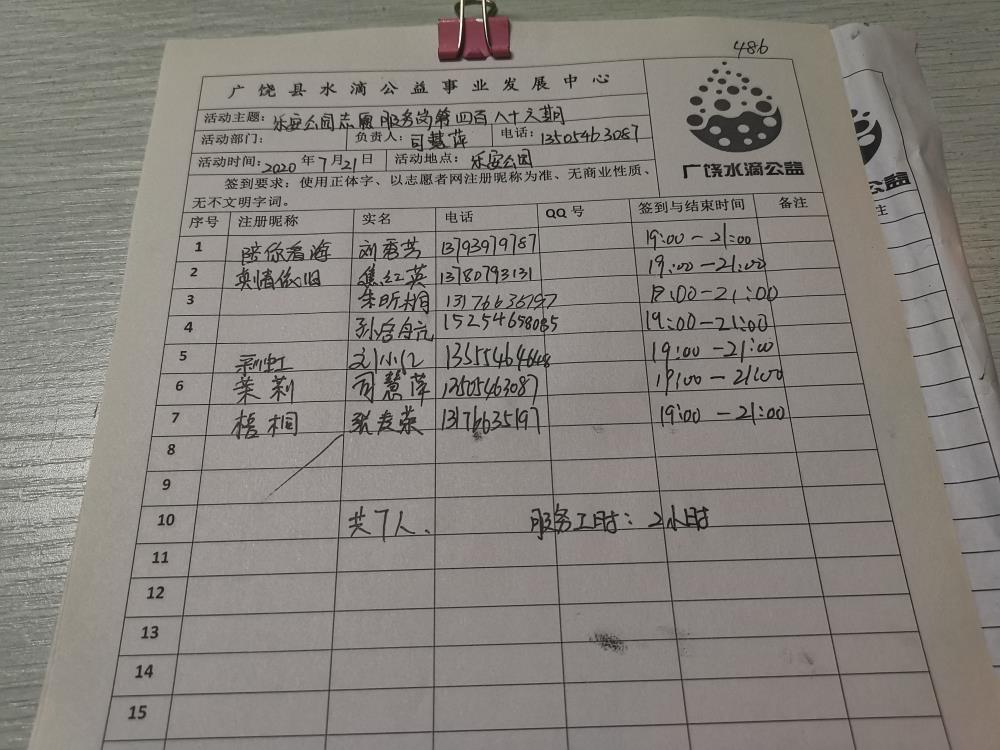 486
广饶县水滴公益事业发展中心
活动主题：乐安公园志愿服务岗第四百八十六期
活动部门： 负责人：司慧萍 电话：13505463087
活动时间：2020年7月21日 活动地点：乐安公园
广饶水滴公益
签到要求：使用正体字、以志愿者网注册昵称为准、无商业性质、
无不文明字词。
序号 注册昵称 实名 电话 QQ号 签到与结束时间 备注
1 陪你看海 刘秀芳 13793979787 19:00-21:00
2 真情依旧 焦红英 13780793131 19:00-21:00
3 13176635197 19:00-21:00
4 15254658085 19:00-21:00
5 彩虹 刘小红 19:00-21:00
6 茉莉 司慧萍 13505463087 19:00-21:00
7 梧桐 张友荣 13176635197 19:00-21:00
8
9
10 共7人. 服务工时：2小时
11
12
13
14
15
公益
注